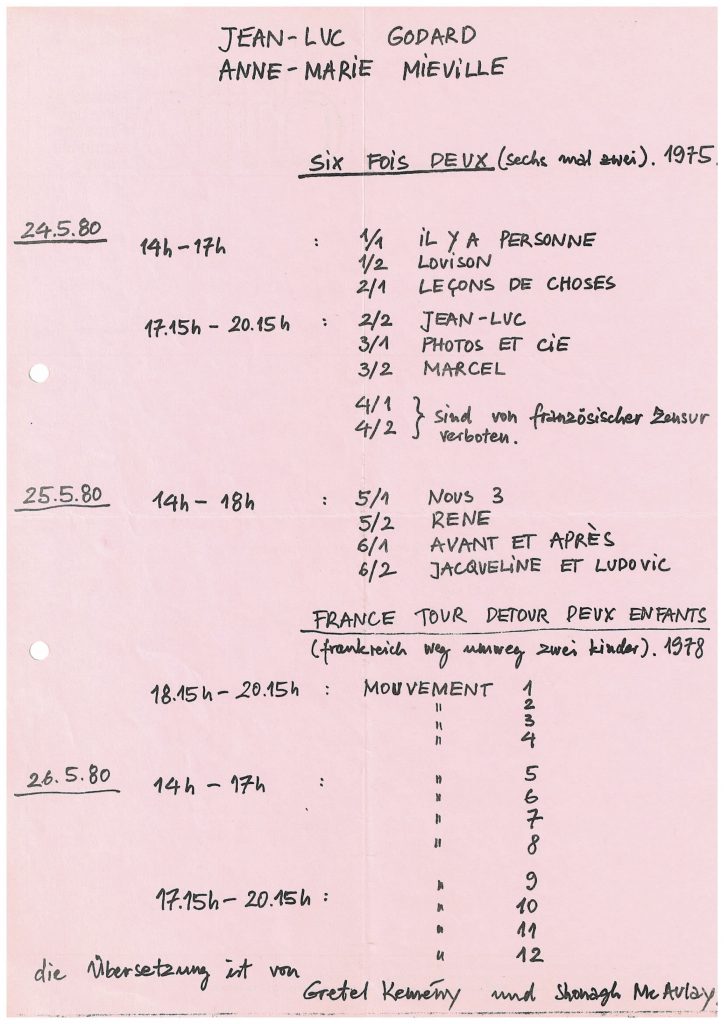 JEAN-LUC GODARD
ANNE-MARIE MIEVILLE
SIX FOIS DEUX (sechs mal zwei). 1975.
24.5.80 14h – 17h : 1/1 IL Y A PERSONNE
1/2 LOVISON
2/1 LEÇONS DE CHOSES
17.15h – 20.15h : 2/2 JEAN-LUC
3/1 PHOTOS ET CIE
3/2 MARCEL
4/1 } sind von französischer Zensur
4/2 verboten.
25.5.80 14h – 18h : 5/1 NOUS 3
5/2 RENE
6/1 AVANT ET APRÈS
6/2 JACQUELINE ET LUDOVIC
FRANCE TOUR DETOUR DEUX ENFANTS
(frankreich weg umweg zwei kinder). 1978
18.15h – 20.15h : MOUVEMENT 1
" 2
" 3
" 4
26.5.80 14h – 17h : " 5
" 6
" 7
" 8
" 9
17.15h – 20.15h : " 10
" 11
" 12
die Übersetzung ist von
Gretel Kemény und Shonagh McAulay